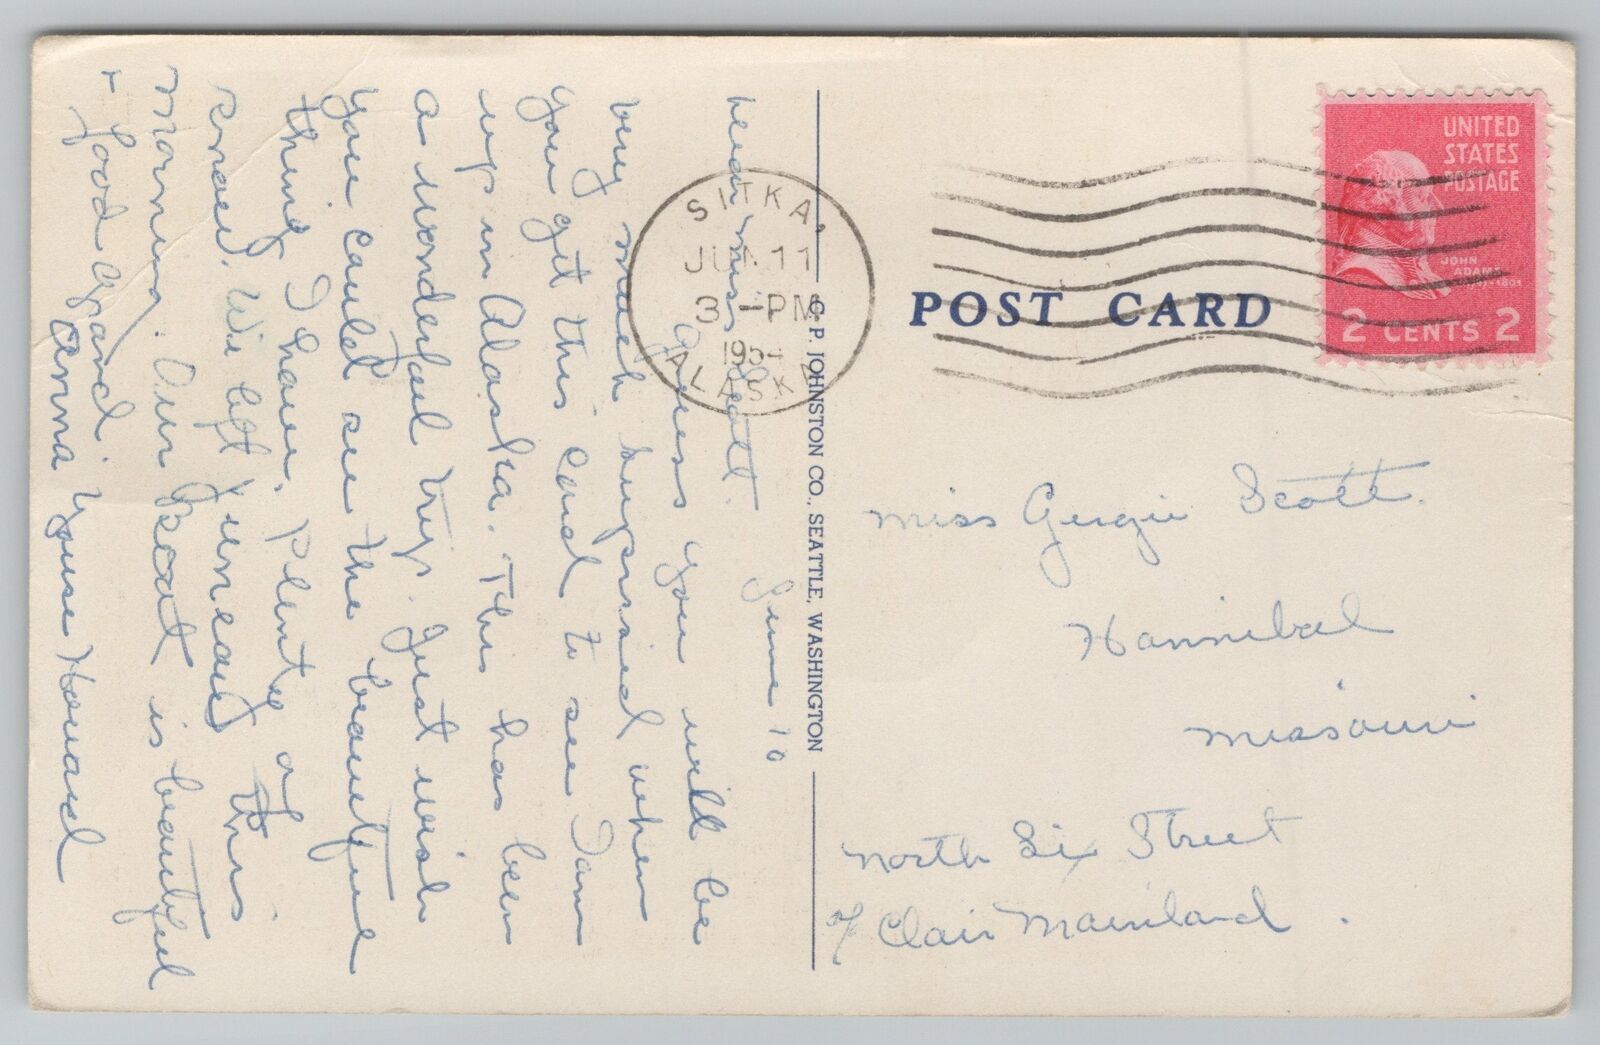 June 10
Dear Miss Scott.
Guess you will be
very much surprised when
you get this card to see I am
up in Alaska. This has been
a wonderful trip. Just wish
you could see the beautiful
thing I have. Plenty of
snow. We left Juneau this
morning. Our Boat is beautiful
+ food grand.
Anna Howard
SITKA,
JUN 11
3-PM
1954
ALASKA
C. P. JOHNSTON CO., SEATTLE, WASHINGTON
POST CARD
UNITED
STATES
POSTAGE
JOHN
ADAMS
2 CENTS 2
Miss Gergie Scott.
Hannibal
Missouri
North Six Street
c/o Clair Mainland.